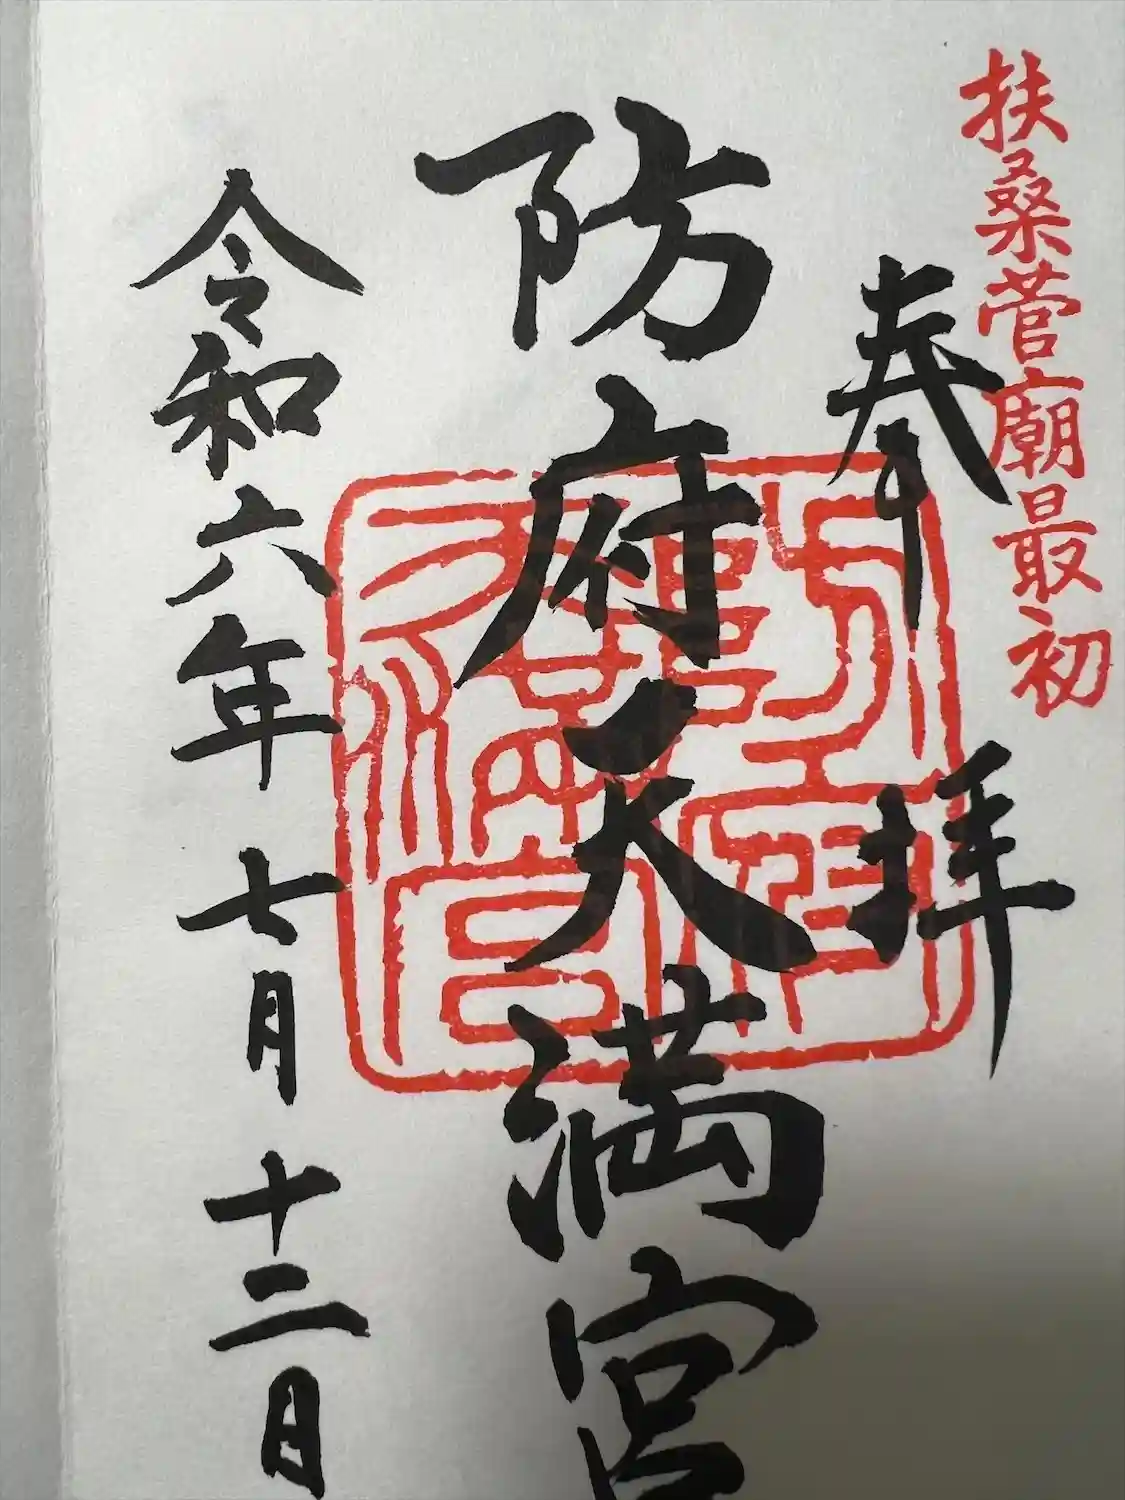 扶桑菅廟最初
奉拝
防府天満宮
令和六年七月十二日